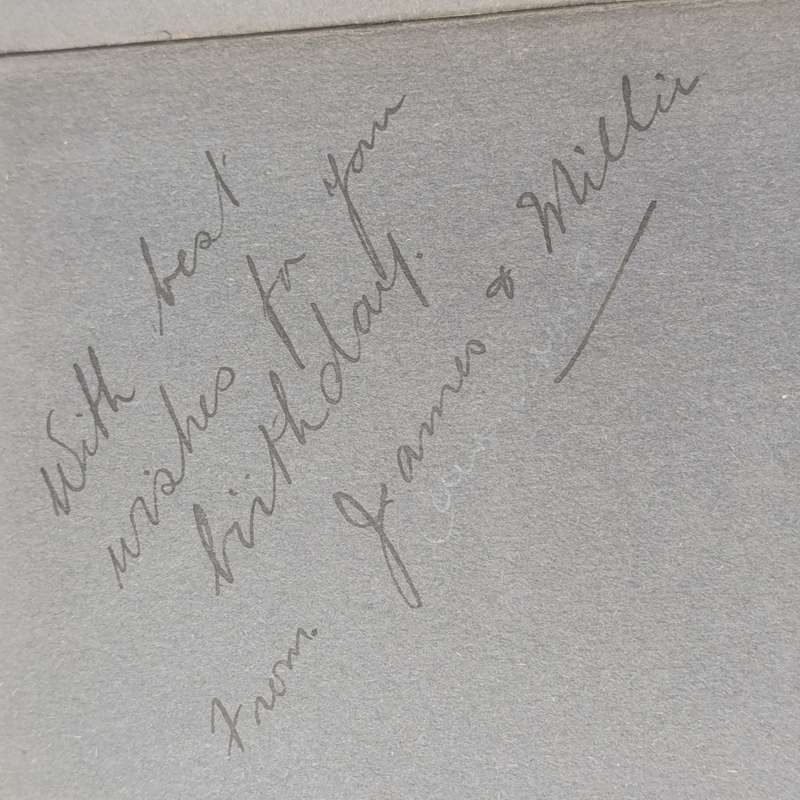 With best
wishes for your
birthday.
From James & Millie